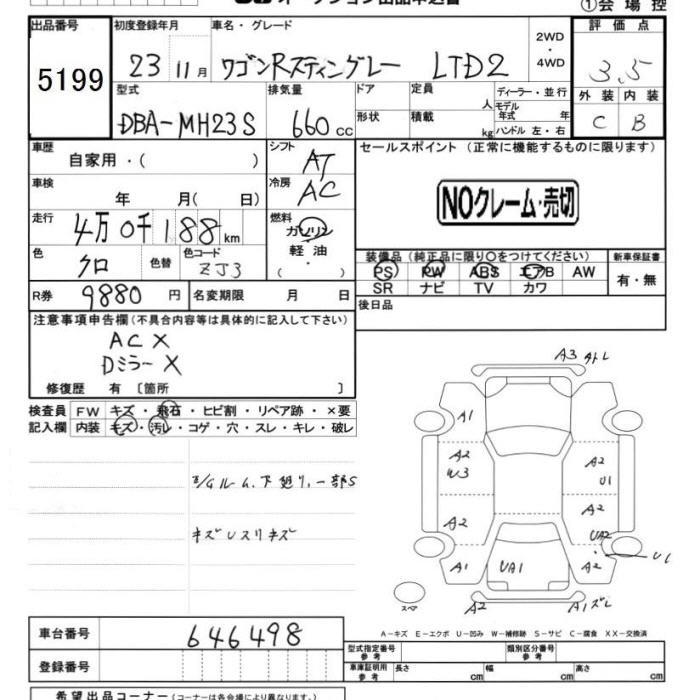 ①会場控
出品番号 初度登録年月 車名・グレード 2WD・4WD 評価点
5199 23 11月 ワゴンRスティングレー LTD2 3.5
型式 排気量 ドア 定員 人 ディーラー・並行 外装 内装
DBA-MH23S 660cc 形状 積載 kg モデル年式 年 ハンドル 左・右 C B
車歴 自家用・( ) シフト AT セールスポイント (正常に機能するものに限ります)
車検 年 月( 日) 冷房 AC
NOクレーム・売切
走行 4万0千188km 燃料 ガソリン 軽油 ・( )
色 クロ 色替 色コード ZJ3
装備品 (純正品に限り○をつけてください) 新車保証書
PS PW ABS エアB AW 有・無
SR ナビ TV カワ
R券 9880円 名変期限 月 日 後日品
注意事項申告欄(不具合内容等は具体的に記入して下さい)
AC X
Dミラー X
修復歴 有 〔箇所 〕
検査員記入欄 FW キズ・飛石・ヒビ割・リペア跡・×要
内装 キズ・汚レ・コゲ・穴・スレ・キレ・破レ
キズUスリキズ
A3
A1
A2
W3
A2
U1
A2
A2
UA2
U1
A1
UA1
A2
スペア
A2
A1ズレ
A-キズ E-エクボ U-凹み W-補修跡 S-サビ C-腐食 XX-交換済
車台番号 646498
登録番号
型式指定番号 参考 類別区分番号 参考
車庫証明用 参考 長さ cm 幅 cm 高さ cm
希望出品コーナー(コーナーは各会場により異なります。)